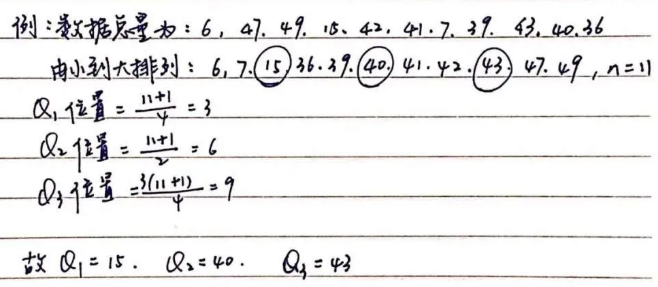 例：数据总量为：6, 47. 49. 15、42. 41. 7. 39. 43. 40. 36
由小到大排列：6, 7. 15 36. 39. 40. 41. 42. 43. 47. 49, n=11
Q₁位置 = (11+1)/4 = 3
Q₂位置 = (11+1)/2 = 6
Q₃位置 = 3(11+1)/4 = 9
故 Q₁ = 15. Q₂ = 40. Q₃ = 43